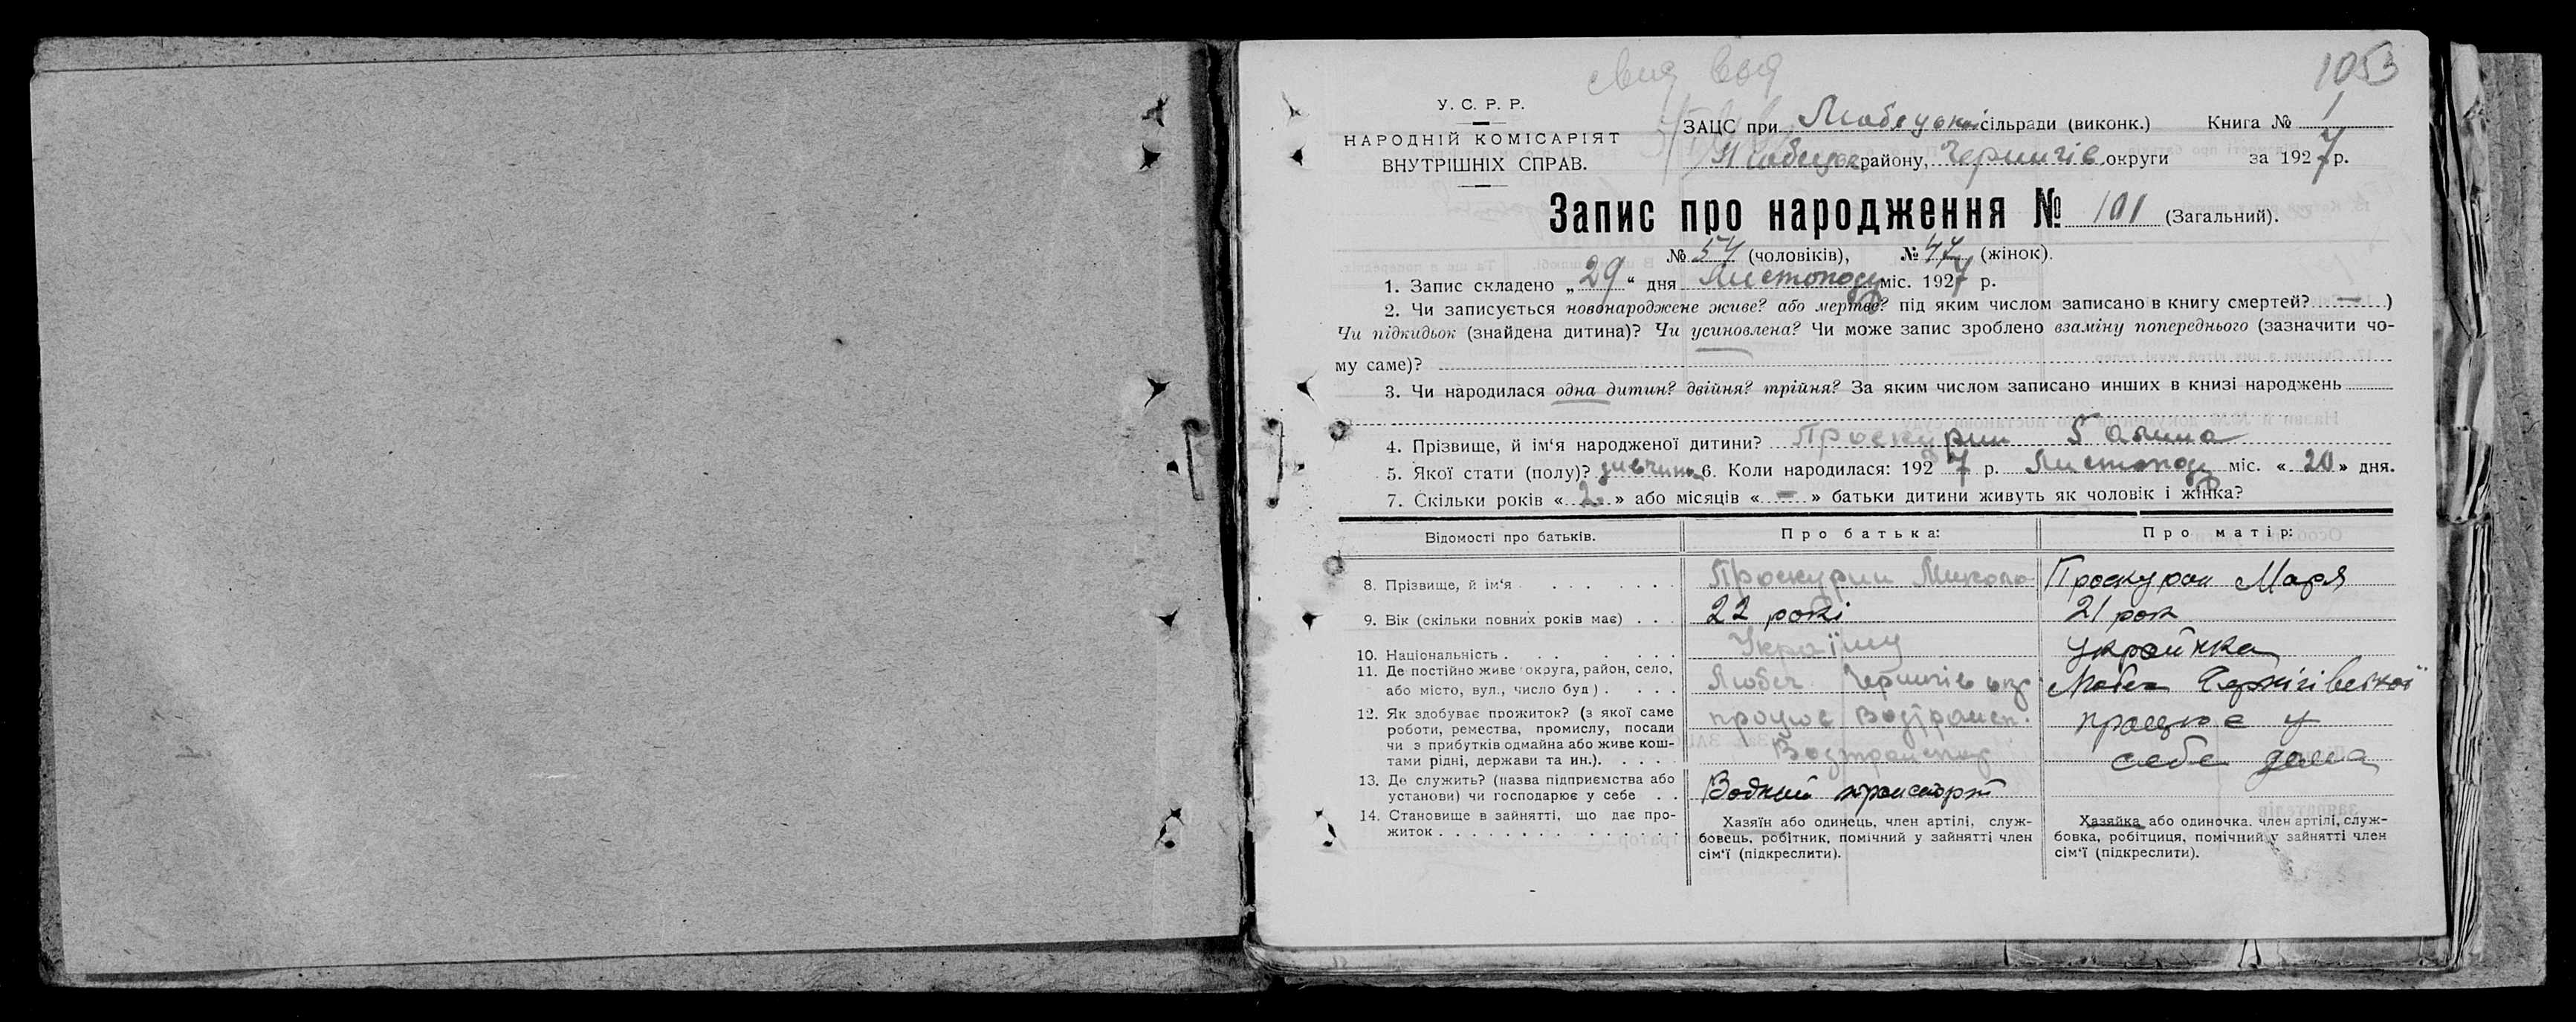 свид выд
1053
У. С. Р. Р.
НАРОДНІЙ КОМІСАРІЯТ
ВНУТРІШНІХ СПРАВ.
ЗАЦС при Любецької сільради (виконк.) Книга № 1
Любецьк району, Чернигів округи за 1927 р.
Запис про народження № 101 (Загальний).
№ 54 (чоловіків), № 47 (жінок).
1. Запис складено „ 29 “ дня Листоподу міс. 1927 р.
2. Чи записується новонароджене живе? або мертве? під яким числом записано в книгу смертей? — )
Чи підкидьок (знайдена дитина)? Чи усиновлена? Чи може запис зроблено взаміну попереднього (зазначити чо-
му саме)?
3. Чи народилася одна дитин? двійня? трійня? За яким числом записано инших в книзі народжень
4. Прізвище, й ім‘я народженої дитини? Проскурин Галина
5. Якої стати (полу)? дивчина 6. Коли народилася: 1927 р. Листопод міс. « 20 » дня.
7. Скільки років « 2 » або місяців « — » батьки дитини живуть як чоловік і жінка?
Відомості про батьків. Про батька: Про матір:
8. Прізвище, й ім‘я Проскурин Микола Проскурин Маря
9. Вік (скільки повних років має) 22 рокі 21 рок
10. Національність Українц украінка
11. Де постійно живе округа, район, село,
або місто, вул., число буд) Любеч Чернигів окр Любеч Чернігівської
12. Як здобуває прожиток? (з якої саме
роботи, ремества, промислу, посади
чи з прибутків одмайна або живе кош-
тами рідні, держави та ин.). працює Водтрансп. Водтранспор працює у себе дома
13. Де служить? (назва підприємства або
установи) чи господарює у себе Водний транспорт
14. Становище в зайнятті, що дає про-
житок
Хазяїн або одинець, член артілі, служ-
бовець, робітник, помічний у зайнятті член
сім‘ї (підкреслити).
Хазяйка або одиночка. член артілі, служ-
бовка, робітциця, помічний у зайнятті член
сім‘ї (підкреслити).